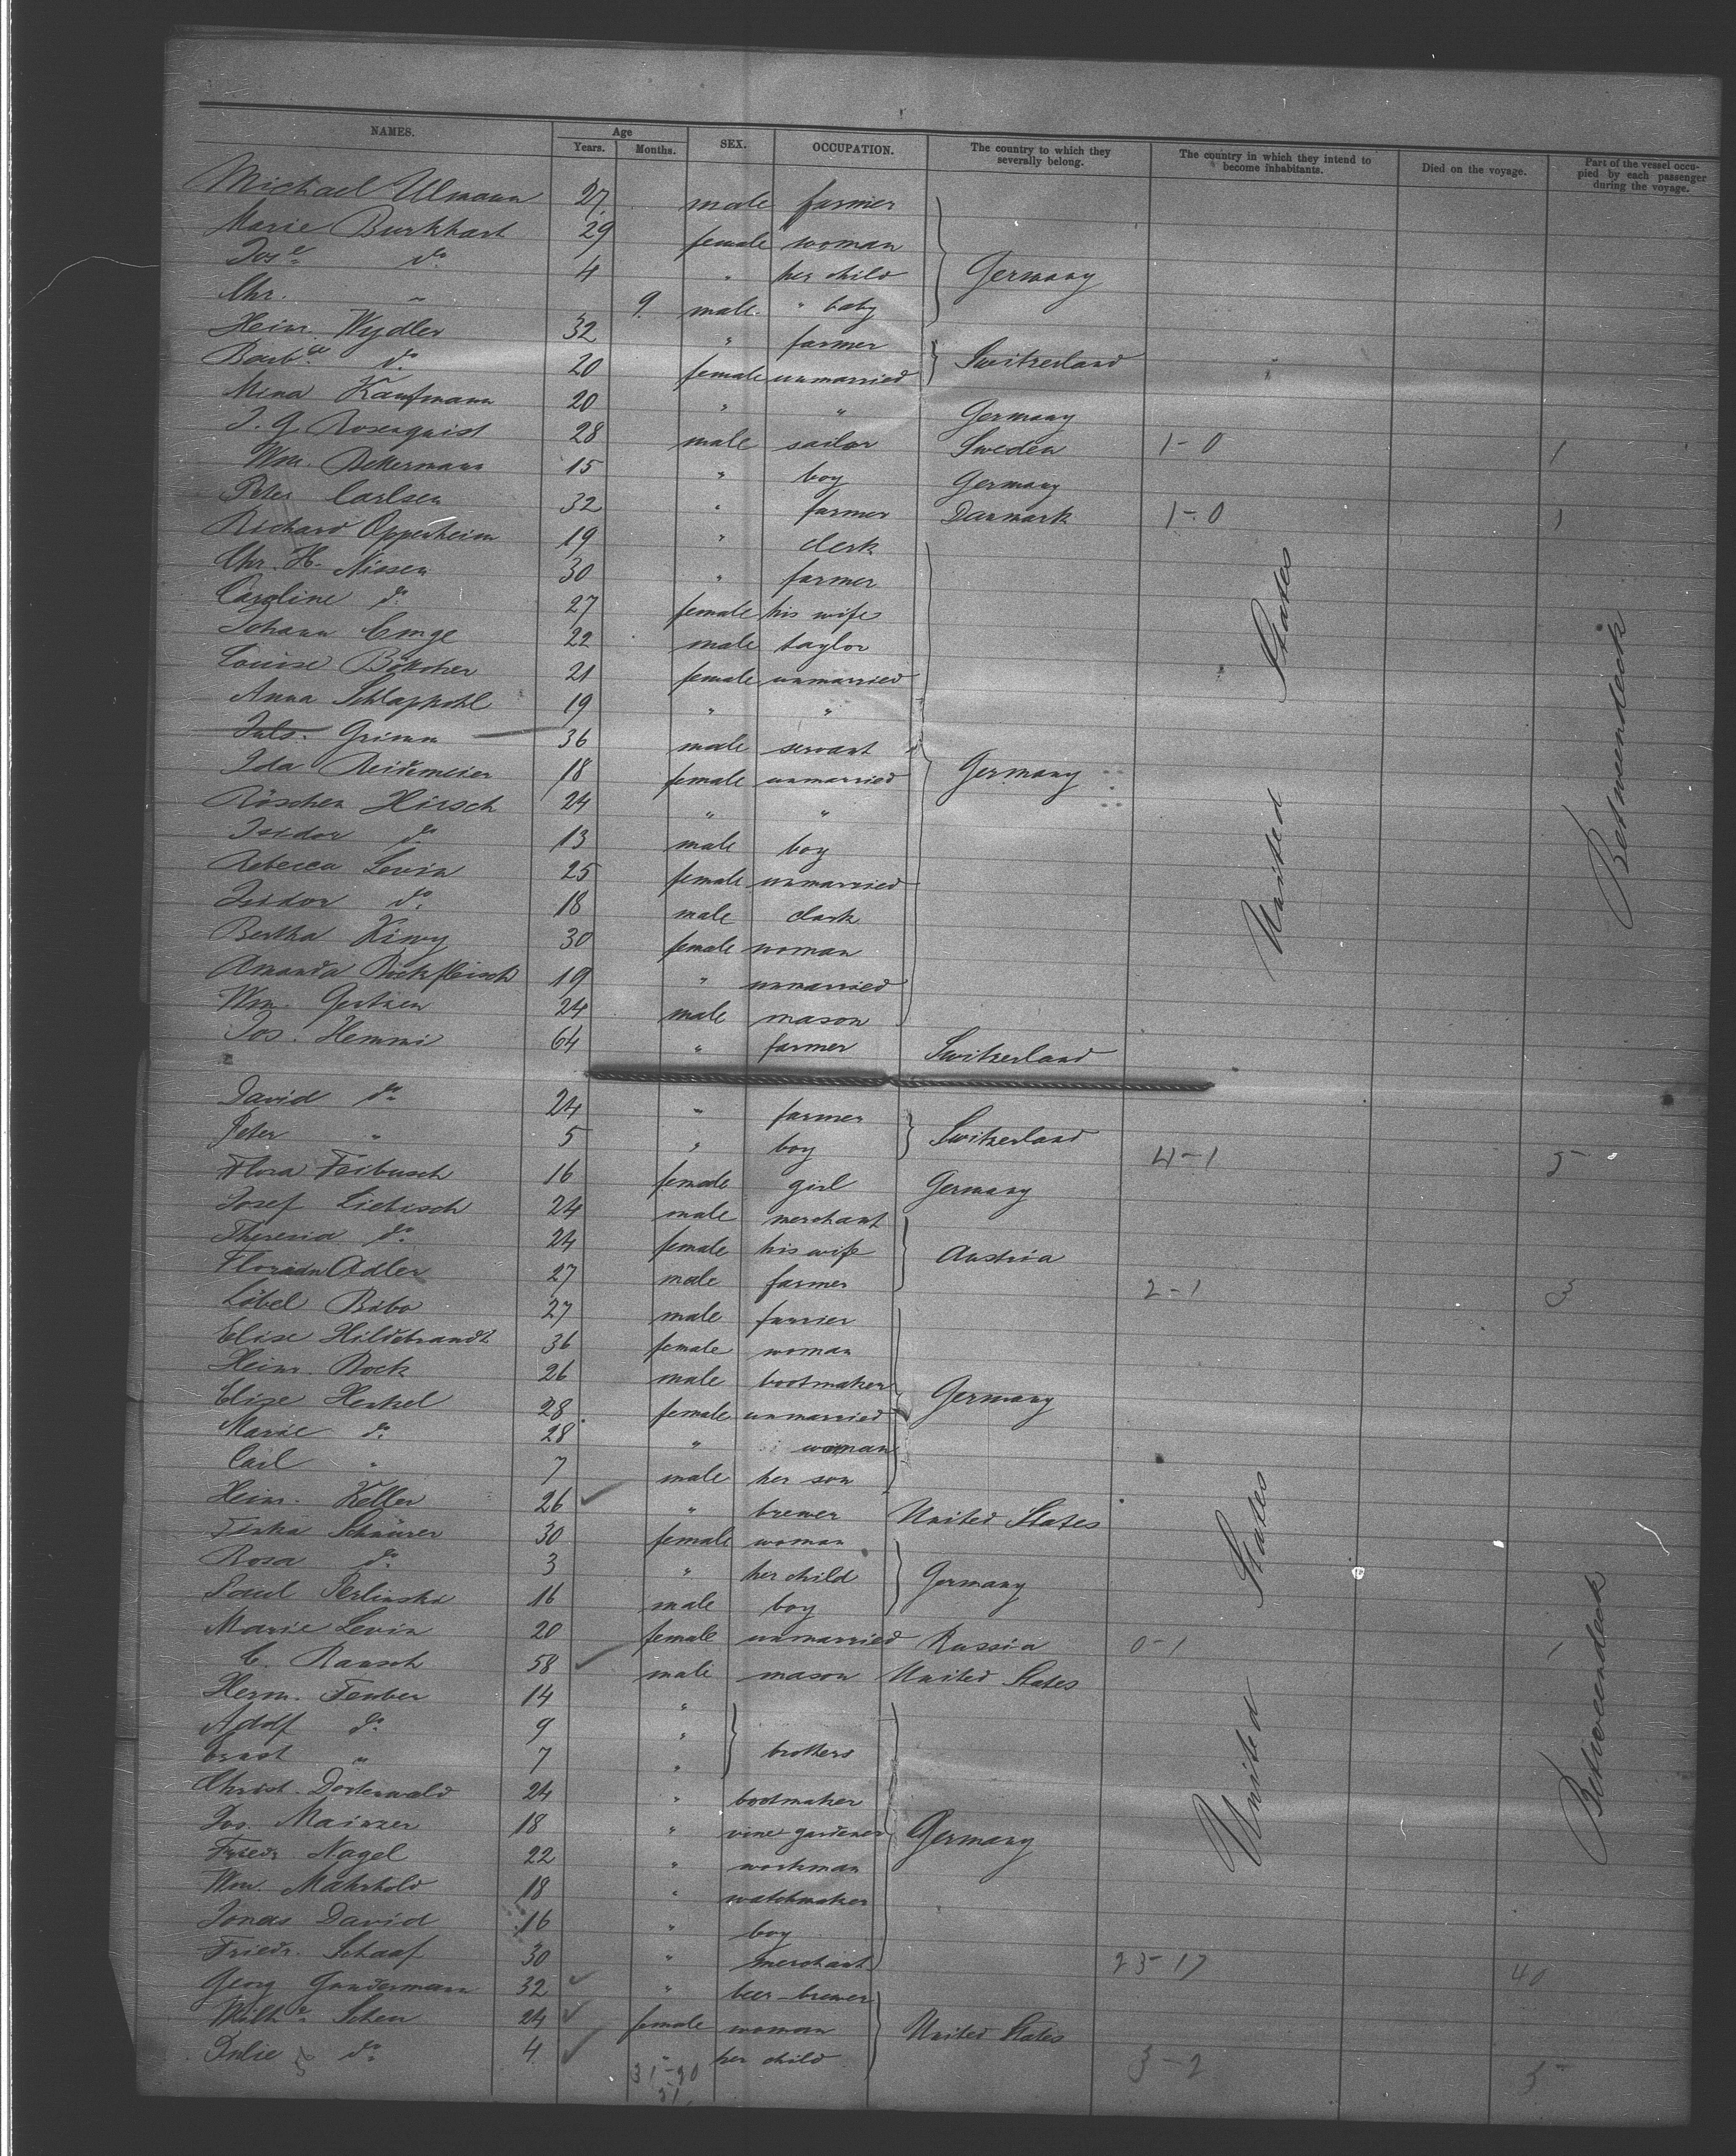 NAMES. Age Years. Months. SEX. OCCUPATION. The country to which they severally belong. The country in which they intend to become inhabitants. Died on the voyage. Part of the vessel occupied by each passenger during the voyage.
Michael Ulmann 27 male farmer
Marie Burkhart 29 female woman
Jos.e do 4 " her child Germany
Chr. " 9 male " baby
Heinr. Wydler 32 " farmer
Barb.a do 20 female unmarried Switzerland
Mina Kaufmann 20 " " Germany
J. G. Rosenquist 28 male sailor Sweden 1-0 1
Wm. Ackermann 15 " boy Germany
Peter Carlsen 32 " farmer Danmark 1-0 1
Richard Oppenheim 19 " clerk
Chr. H. Nissen 30 " farmer
Caroline do 27 female his wife
Johann Emge 22 male taylor
Louise Böttcher 21 female unmarried
Anna Schlapkohl 19 " "
Juls. Grimm 36 male servant
Ida Reidemeier 18 female unmarried Germany
Röschen Hirsch 24 " "
Isidor do 13 male boy
Rebecca Levin 25 female unmarried
Isidor do 18 male clark
Bertha Kiwy 30 female woman
Amanda Rockfleisch 19 " unmarried
Wm. Gertzen 24 male mason
Jos. Hemmi 64 " farmer Switzerland
United States
Betweendeck
David do 24 " farmer
Peter " 5 " boy Switzerland 4-1 5
Flora Feibusch 16 female girl Germany
Josef Liebisch 24 male merchant
Theresia do 24 female his wife Austria
Florian Adler 27 male farmer 2-1 3
Löbel Bibo 27 male furrier
Elise Hildebrandt 36 female woman
Heinr. Rock 26 male bootmaker
Elise Henkel 28 female unmarried Germany
Marie do 28 " woman
Carl " 7 male her son
Heinr. Keller 26 " brewer United States
Schnürer 30 female woman
Rosa do 3 " her child Germany
Paul Perlinski 16 male boy
Marie Levin 20 female unmarried Russia 0-1 1
C. Rausch 58 male mason United States
Herm. Tenber 14 "
Adolf do 9 " brothers
Ernst " 7 "
Christ. Dosterwald 24 " bootmaker
Jos. Mainzer 18 " vine gardener Germany
Friedr. Nagel 22 " workman
Wm. Mahrhold 18 " watchmaker
Jonas David 16 " boy
Friedr. Schaaf 30 " merchant 23-17 40
Georg Gundermann 32 " beer-brewer
Wilh.e Scheu 24 female woman United States
Julie do 4 " her child 3-2 5
31-20
United States
Betweendeck